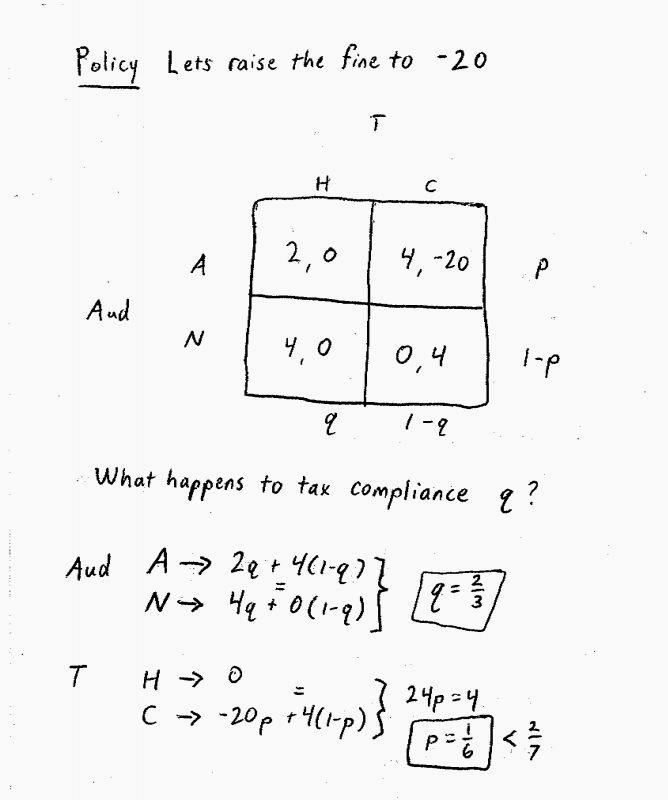 Policy Lets raise the fine to -20
T
H C
A 2, 0 4, -20 p
Aud
N 4, 0 0, 4 1-p
q 1-q
What happens to tax compliance q?
Aud A → 2q + 4(1-q)
= } q = 2/3
N → 4q + 0(1-q)
T H → 0
= } 24p = 4
C → -20p + 4(1-p)
p = 1/6 < 2/7